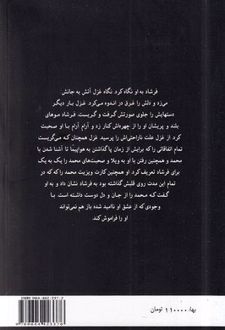 فرشاد به او نگاه کرد. نگاه غزل آتش به جانش
می‌زد و دلش را غرق در اندوه می‌کرد. غزل بار دیگر
دستهایش را جلوی صورتش گرفت و گریست. فرشاد موهای
بلند و پریشان او را از چهره‌اش کنار زد و آرام آرام با او صحبت
کرد. از غزل علت ناراحتی‌اش را پرسید. غزل همچنان که می‌گریست
تمام اتفاقاتی که برایش از زمان پا گذاشتن به هواپیما تا آشنا شدن با
محمد و همچنین رفتن با او به ویلا و صحبت‌های محمد را یک به یک
برای فرشاد تعریف کرد. او همچنین کارت ویزیت محمد را که که در
تمام این مدت روی قلبش گذاشته بود به فرشاد نشان داد و به او
گفت که محمد را از جان و دل دوست داشته است. با
وجودی که از عشق او ناامید شده باز هم نمی‌تواند
او را فراموش کند.
بها: ۱۱۰۰۰۰ تومان